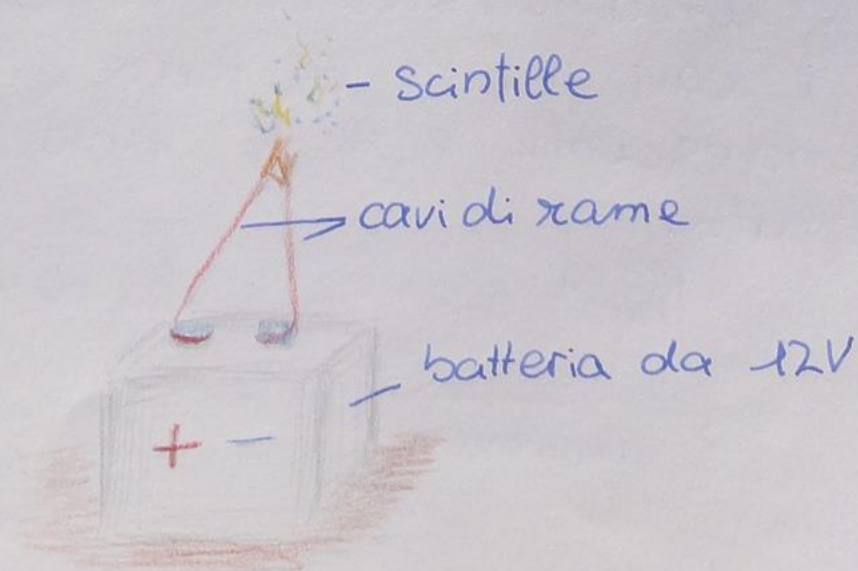 - scintille
cavi di rame
batteria da 12V
+ -